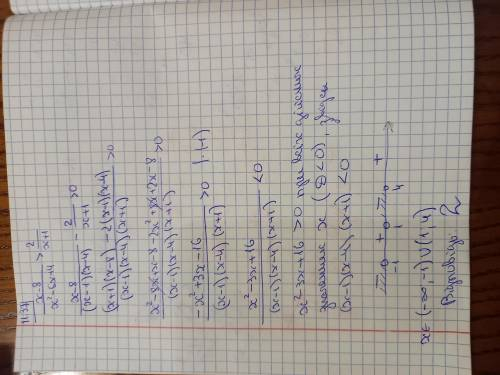 11.33) (x-8)/(x²-5x+4) > 2/(x+1)
(x-8)/((x-1)(x-4)) - 2/(x+1) > 0
((x+1)(x-8) - 2(x-1)(x-4))/((x-1)(x-4)(x+1)) > 0
(x²-8x+x-8-2x²+8x+2x-8)/((x-1)(x-4)(x+1)) > 0
(-x²+3x-16)/((x-1)(x-4)(x+1)) > 0 |·(-1)
(x²-3x+16)/((x-1)(x-4)(x+1)) < 0
x²-3x+16 > 0 при всіх дійсних
значеннях x (D<0), звідси
(x-1)(x-4)(x+1) < 0
- + - +
-1 1 4
x∈(-∞;-1)∪(1;4)
Відповідь: 2